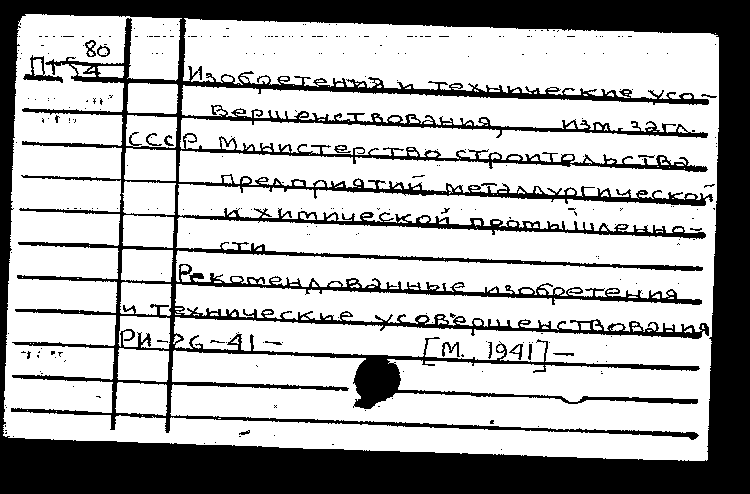 80
ПТ 54
Изобретения и технические усо-
вершенствования, изм. загл.
СССР. Министерство строительства
предприятий металлургической
и химической промышленно-
сти
Рекомендованные изобретения
и технические усовершенствования
РИ-26-41- [М., 1941]-